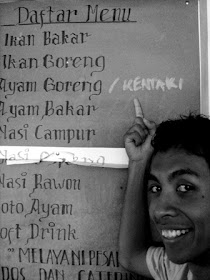 Daftar Menu
Ikan Bakar
Ikan Goreng
Ayam Goreng / KENTAKI
Ayam Bakar
Nasi Campur
Nasi
Nasi Rawon
Soto Ayam
Soft Drink
"MELAYANI PESAN
DOS DAN CATERING